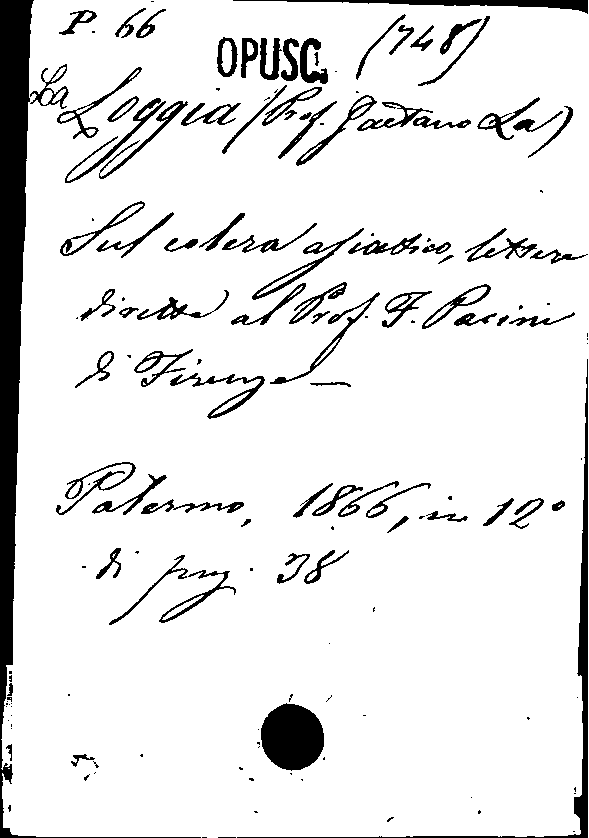 P. 66 OPUSC. (748)
La Loggia (Prof. Gaetano La)
Sul colera asiatico, lettera
diretta al Prof. F. Pacini
di Firenze —
Palermo, 1866, in 12°
di pag. 38